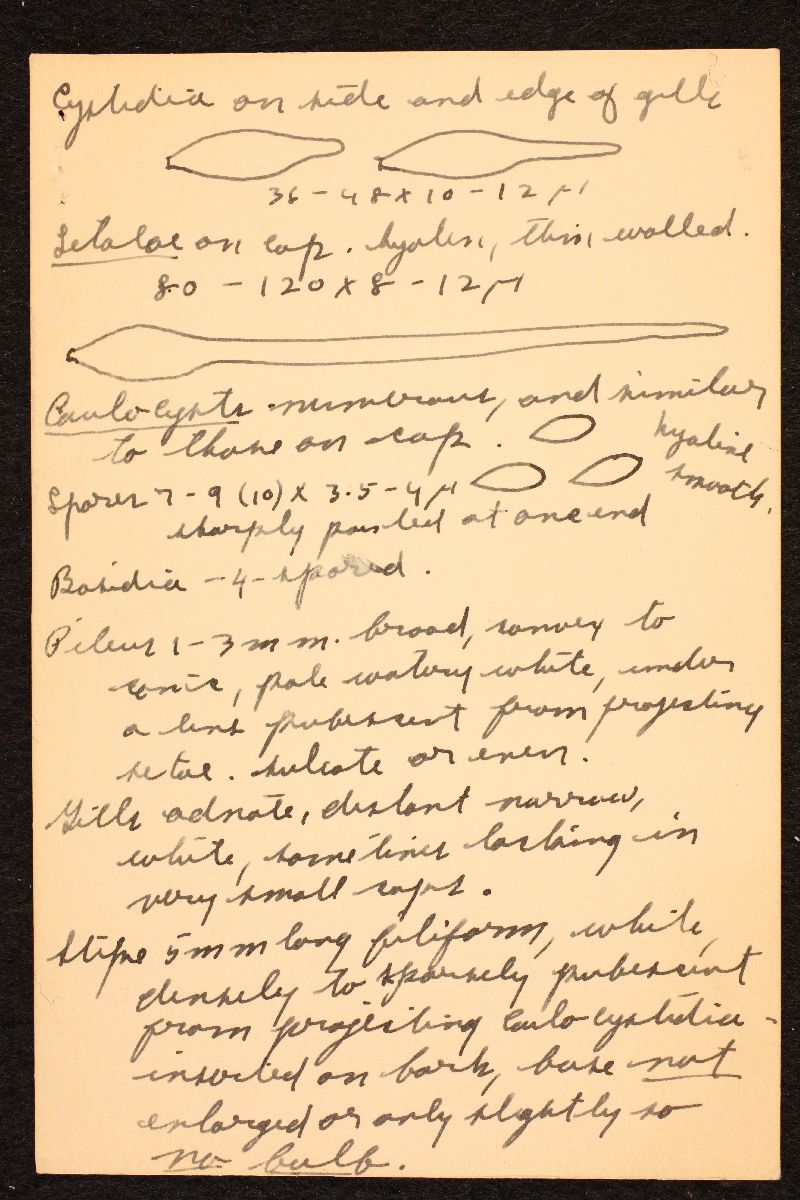 Cystidia on side and edge of gills
36 - 48 x 10 - 12 μ
Setalae on cap. hyalin, thin walled.
80 - 120 x 8 - 12 μ
Caulocysts numerous, and similar
to those on cap.
hyaline
smooth.
Spores 7 - 9 (10) x 3.5 - 4 μ
sharply pointed at one end
Basidia - 4 - spored.
Pileus 1 - 3 m m. broad, convex to
conic, pale watery white, under
a lens pubescent from projecting
setae. sulcate or even.
Gills adnate, distant narrow,
white, sometimes lacking in
very small caps.
Stipe 5 m m long filiform, white,
densely to sparsely pubescent
from projecting caulocystidia -
inserted on bark, base not
enlarged or only slightly so
no bulb.